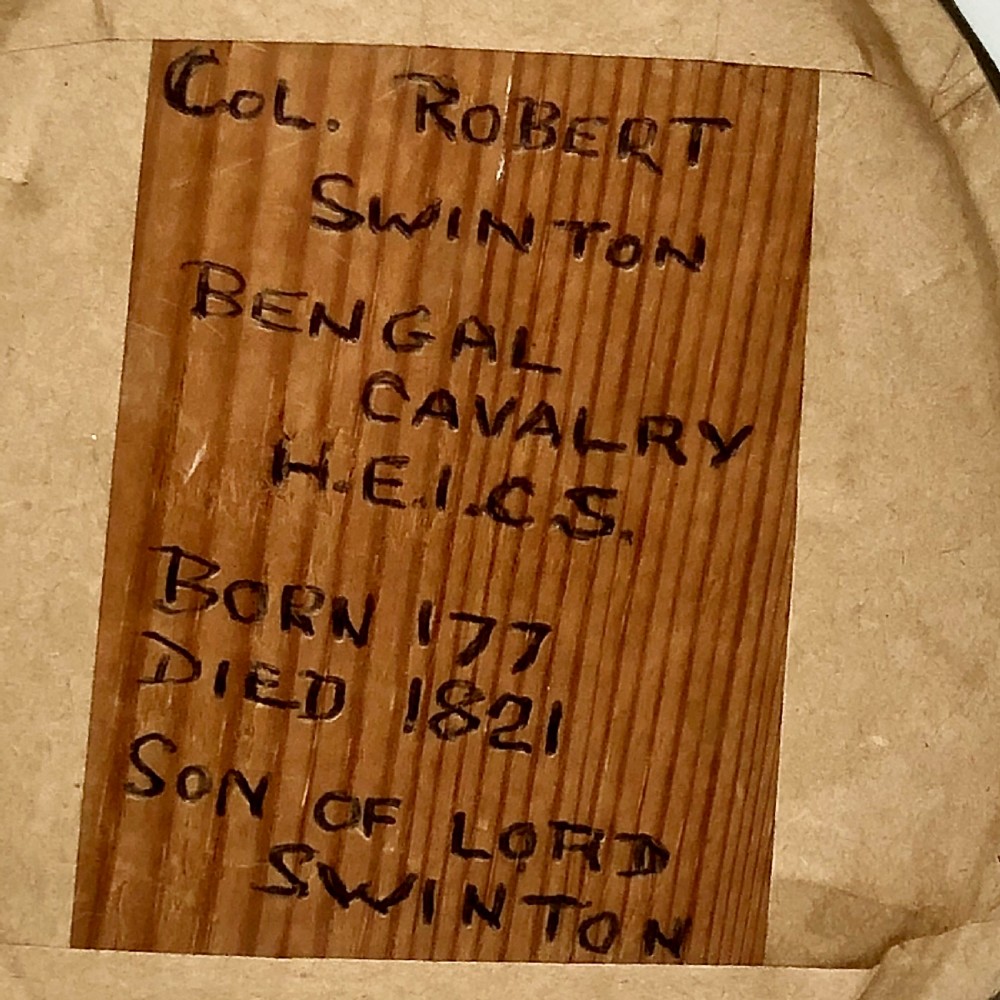 COL. ROBERT
SWINTON
BENGAL
CAVALRY
H.E.I.C.S.
BORN 177
DIED 1821
SON OF LORD
SWINTON